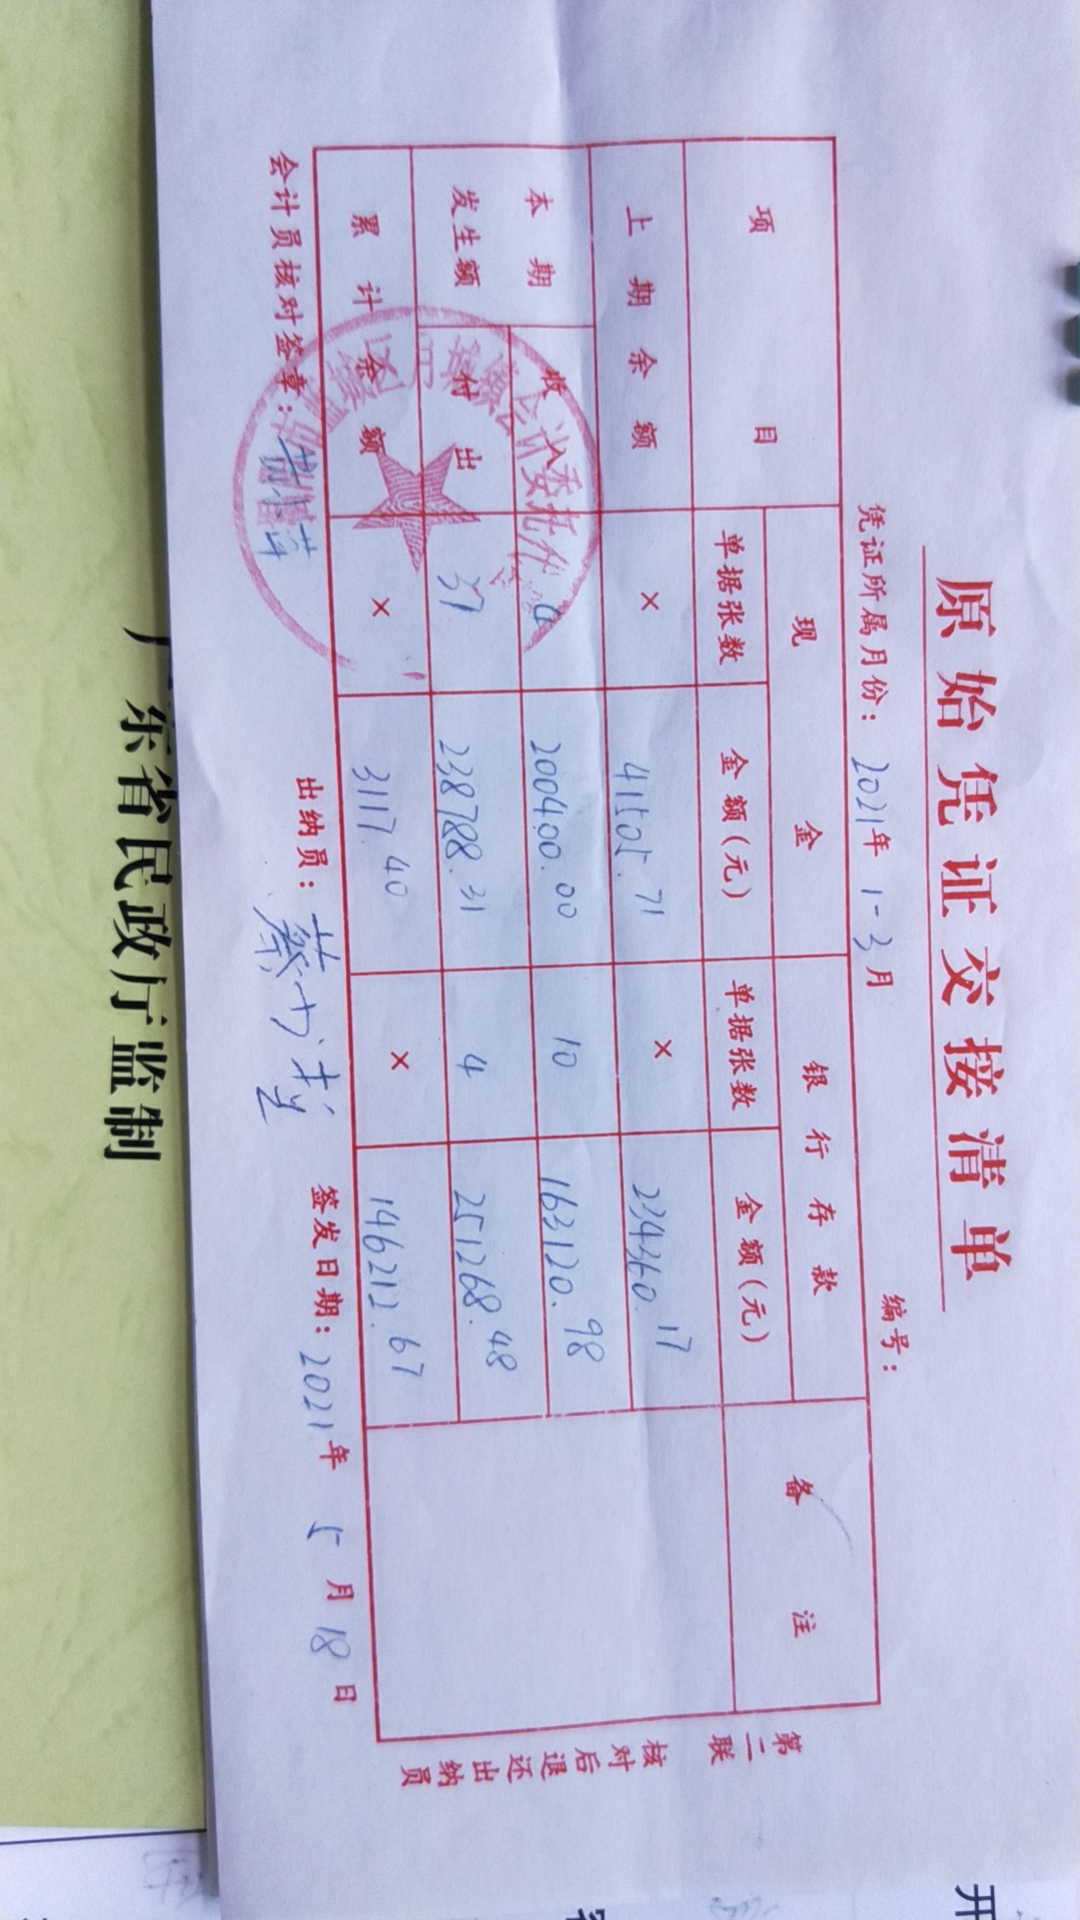 原始凭证交接清单
凭证所属月份：2021年 1-3月 编号：
项目 现金 银行存款 备注
单据张数 金额(元) 单据张数 金额(元)
上期余额 × 41505.71 × 234360.17
本期发生额 收入 200400.00 10 163120.98
付出 37 238788.31 4 251268.48
累计余额 × 3117.40 × 146212.67
会计员核对签章： 出纳员： 签发日期：2021年 5月 18日
第二联 核对后退还出纳员
东省民政厅监制
开